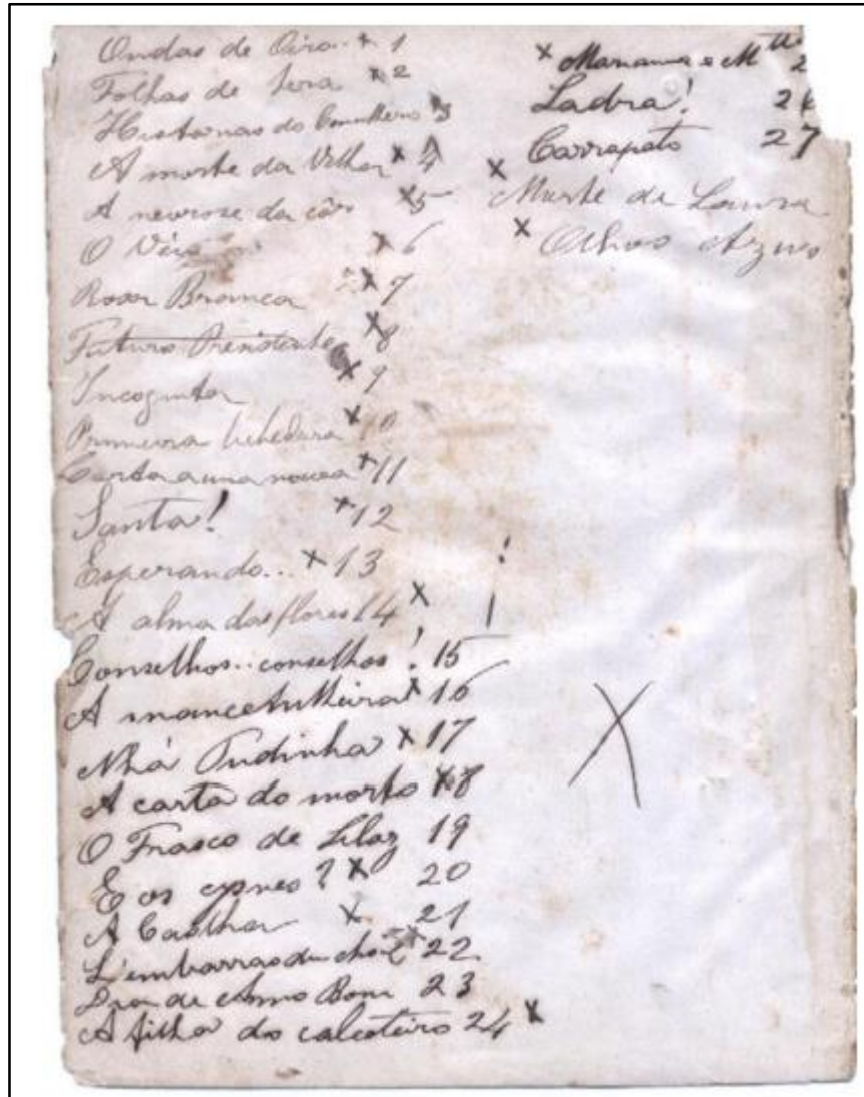 Ondas de Oiro.. x 1
Folhas de hera x 2
Historias do Conselheiro x 3
A morte da Velha x 4
A nevrose da côr x 5
O x 6
Rosa Branca x 7
Futuro Presidente x 8
Incognita x 9
Primeira bebedeira x 10
Carta a uma noiva x 11
Santa! x 12
Esperando... x 13
A alma das flores 14 x
Conselhos.. conselhos! 15
A 16
Nhá Tudinha x 17
A carta do morto x 18
O Frasco de Lilaz 19
E os cysnes? x 20
A Caolha x 21
L'embarras du choix 22
Dia de Anno Bom 23
A filha do caloteiro 24 x
x Marianna e
Ladra! 26
Carrapato 27
x Morte de Laura
x Olhos Azues
!
X